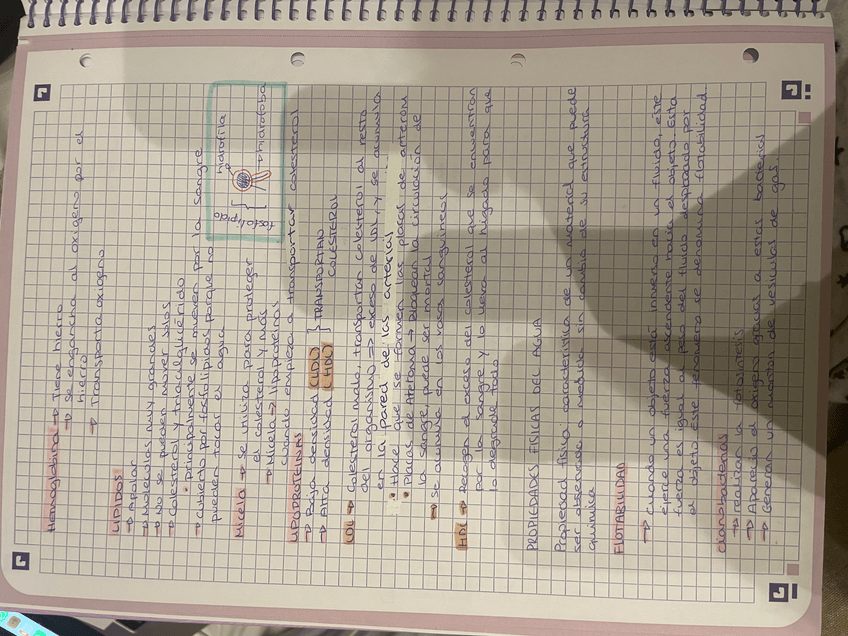 Hemoglobina → Tiene hierro
→ se engancha al oxígeno por el
hierro
→ Transporta oxígeno
LIPIDOS
→ Apolar
→ Moléculas muy grandes
→ No se pueden mover solos
→ Colesterol y triacilgliérido
• Principalmente se mueven por la sangre
→ cubierto por fosfolípidos porque no
pueden tocar el agua
hidrofila
hidrofoba
fosfolípido
Micela → se utiliza para proteger
el colesterol y más
→ Micela => lipoproteínas
cuando empieza a transportar colesterol
LIPOPROTEINAS
→ Baja densidad (LDL)
→ Alta densidad (HDL)
TRANSPORTAN
COLESTEROL
LDL → Colesterol malo, transportar colesterol al resto
del organismo => exceso de LDL y se acumula
en la pared de las arterias
• Hace que se formen las placas de aterom
• Placas de Ateroma → Bloquean la circulación de
la sangre, puede ser mortal
→ se acumula en los vasos sanguíneos
HDL → Recogen el exceso del colesterol que se encuentran
por la sangre y lo lleva al hígado para que
lo degrade todo
PROPIEDADES FISICAS DEL AGUA
Propiedad física característica de un material que puede
ser observada o medida sin cambio de su estructura
química
FLOTABILIDAD
→ Cuando un objeto está inmerso en un fluido, éste
ejerce una fuerza ascendente hacia el objeto. Esta
fuerza es igual al peso del fluido desplazado por
el objeto este fenomeno se denomina flotabilidad.
cianobacterias
→ realizan la fotosíntesis
→ Apareció el oxígeno gracias a estas bacterias
→ Generan un montón de vesículas de gas